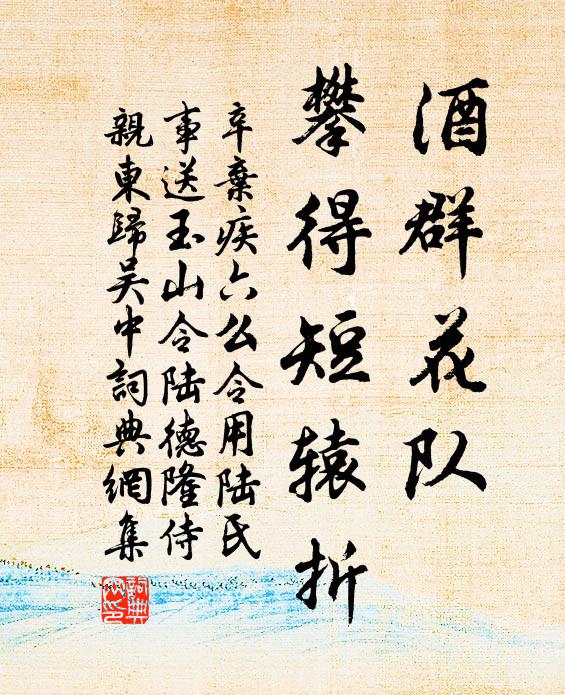 酒群花队
攀得短辕折
辛棄疾六么令用陆氏
事送玉山令陆德隆侍
親東歸吴中詞典網集